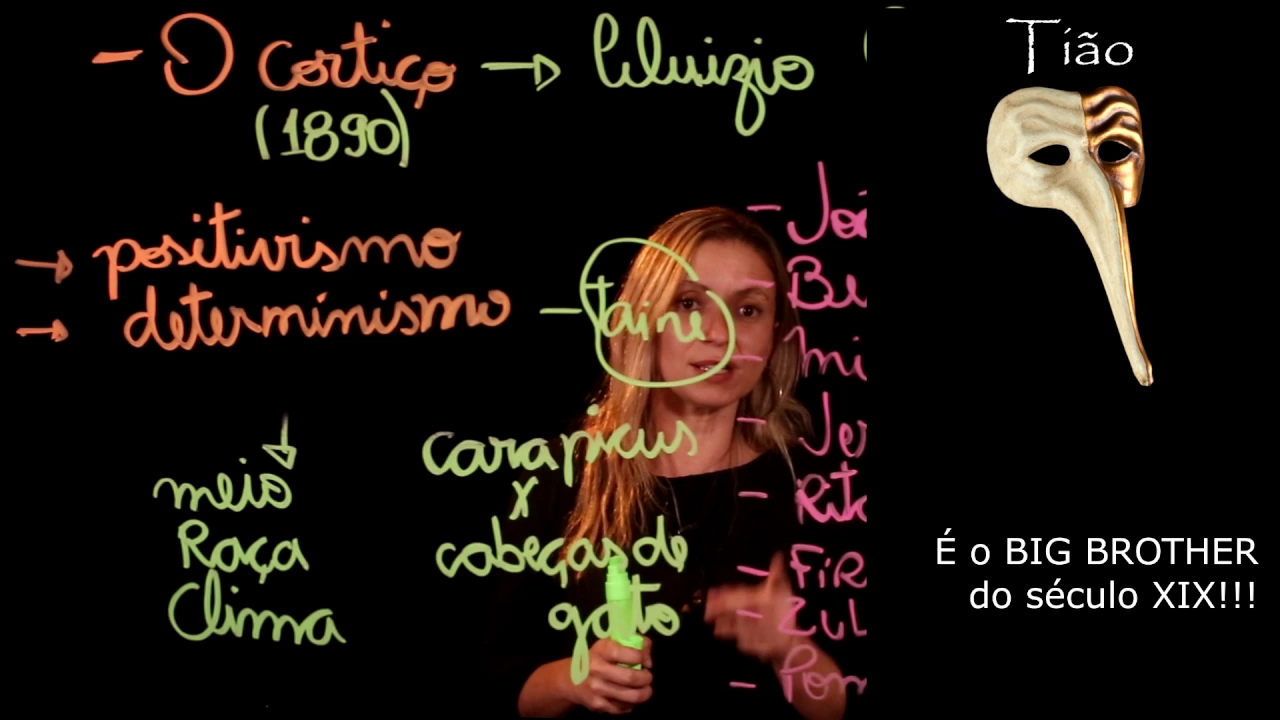 - O Cortiço → Aluizio
(1890)
→ positivismo
→ determinismo - Taine
meio
Raça
Clima
carapicus
x
cabeças de
gato
- Joã
- Be
- Mi
- Jer
- Rita
- FIR
- ZUL
- Pom
Tião
É o BIG BROTHER
do século XIX!!!